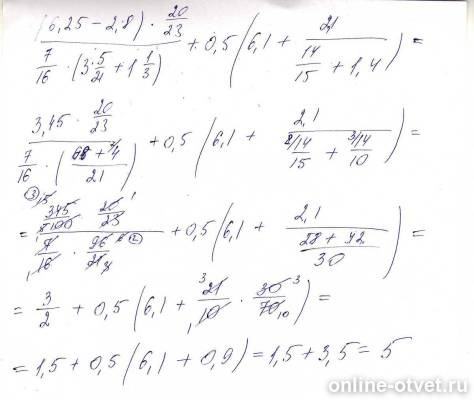 (6,25 − 2,8) · 20/23
7/16 · (3 5/21 + 1 1/3) + 0,5 (6,1 + 21 / (14/15 + 1,4)) =
3,45 · 20/23
7/16 · ((68 + 4)/21) + 0,5 (6,1 + 2,1 / (14/15 + 14/10)) =
= 345/100 · 20/23
7/16 · 96/21 + 0,5 (6,1 + 2,1 / ((28 + 42)/30)) =
= 3/2 + 0,5 (6,1 + 21/10 · 30/70) =
= 1,5 + 0,5 (6,1 + 0,9) = 1,5 + 3,5 = 5
online-otvet.ru